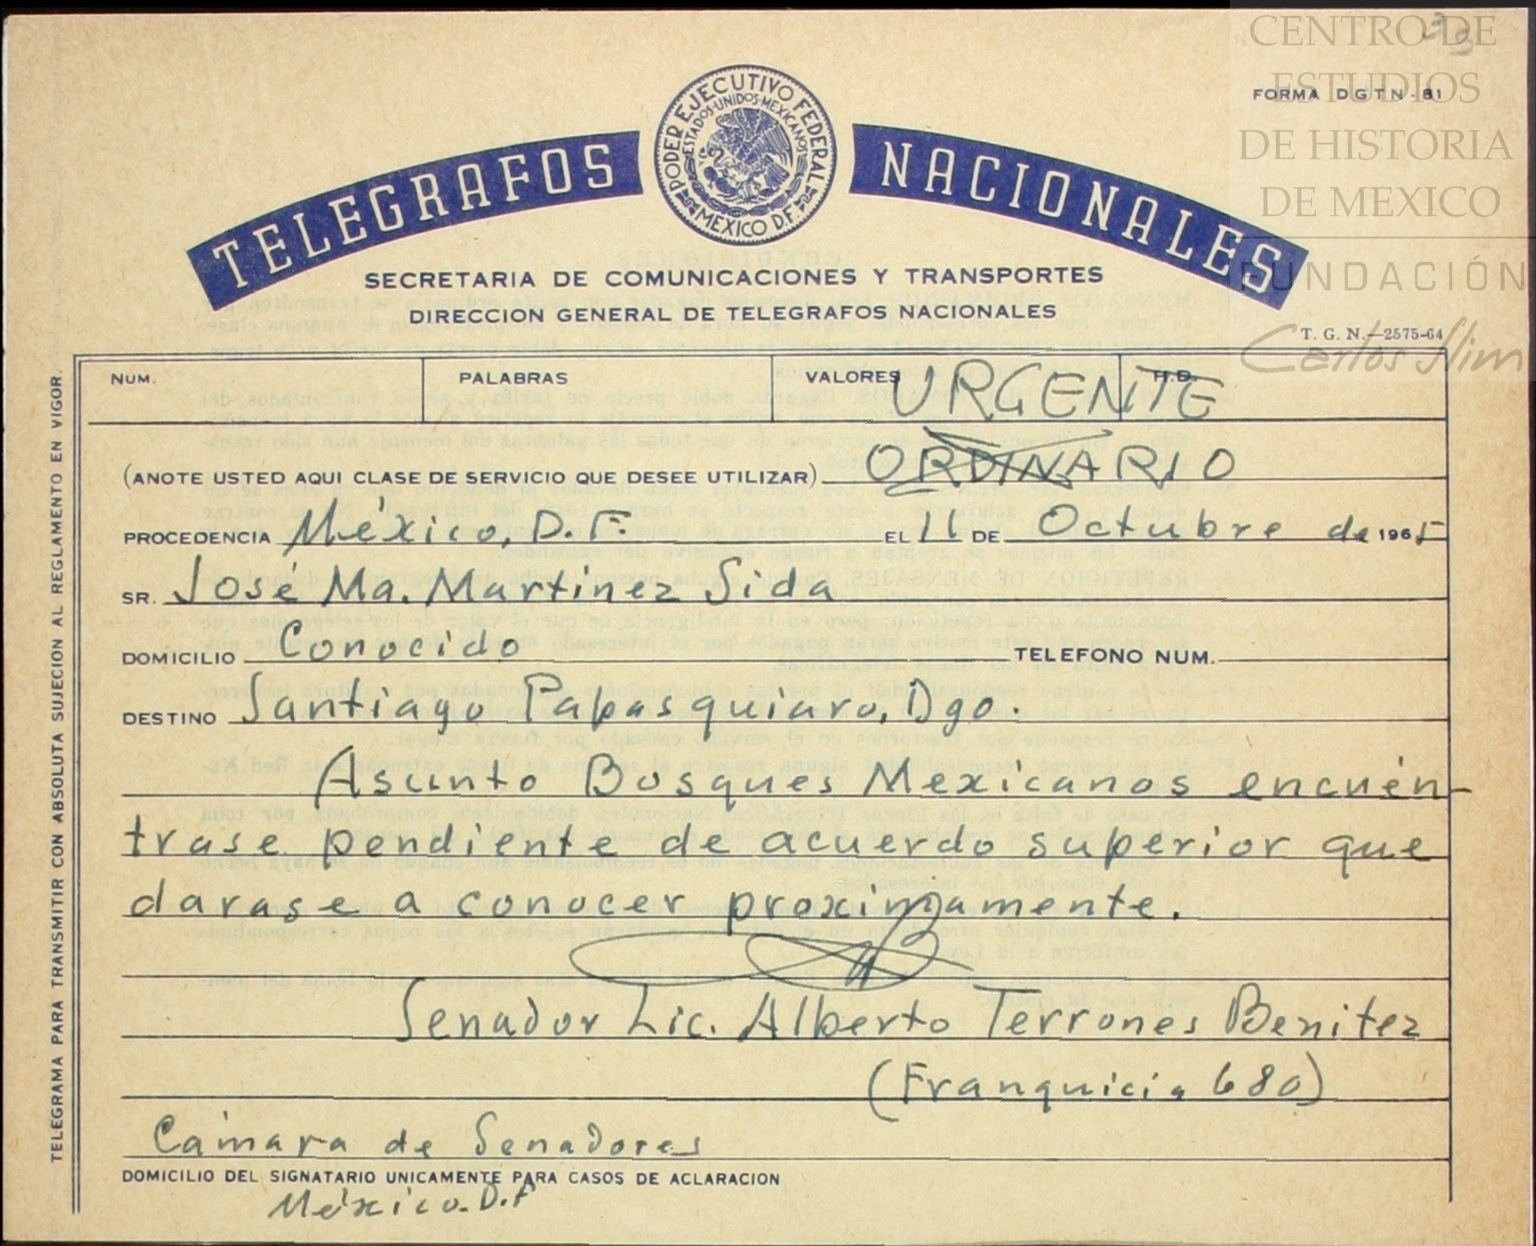 CENTRO DE
ESTUDIOS
DE HISTORIA
DE MEXICO
FUNDACIÓN
Carlos Slim
FORMA DGTN-81
TELEGRAFOS NACIONALES
PODER EJECUTIVO FEDERAL
ESTADOS-UNIDOS-MEXICANOS
MEXICO D.F.
SECRETARIA DE COMUNICACIONES Y TRANSPORTES
DIRECCION GENERAL DE TELEGRAFOS NACIONALES
T. G. N.—2575-64
NUM. PALABRAS VALORES H.D. URGENTE
(ANOTE USTED AQUI CLASE DE SERVICIO QUE DESEE UTILIZAR) ORDINARIO
PROCEDENCIA México, D.F. EL 11 DE Octubre de 1965
SR. José Ma. Martínez Sida
DOMICILIO Conocido TELEFONO NUM.
DESTINO Santiago Papasquiaro, Dgo.
Asunto Bosques Mexicanos encuén-
trase pendiente de acuerdo superior que
darase a conocer proximamente.
Senador Lic. Alberto Terrones Benitez
(Franquicia 680)
Cámara de Senadores
DOMICILIO DEL SIGNATARIO UNICAMENTE PARA CASOS DE ACLARACION
México. D.F
TELEGRAMA PARA TRANSMITIR CON ABSOLUTA SUJECION AL REGLAMENTO EN VIGOR.